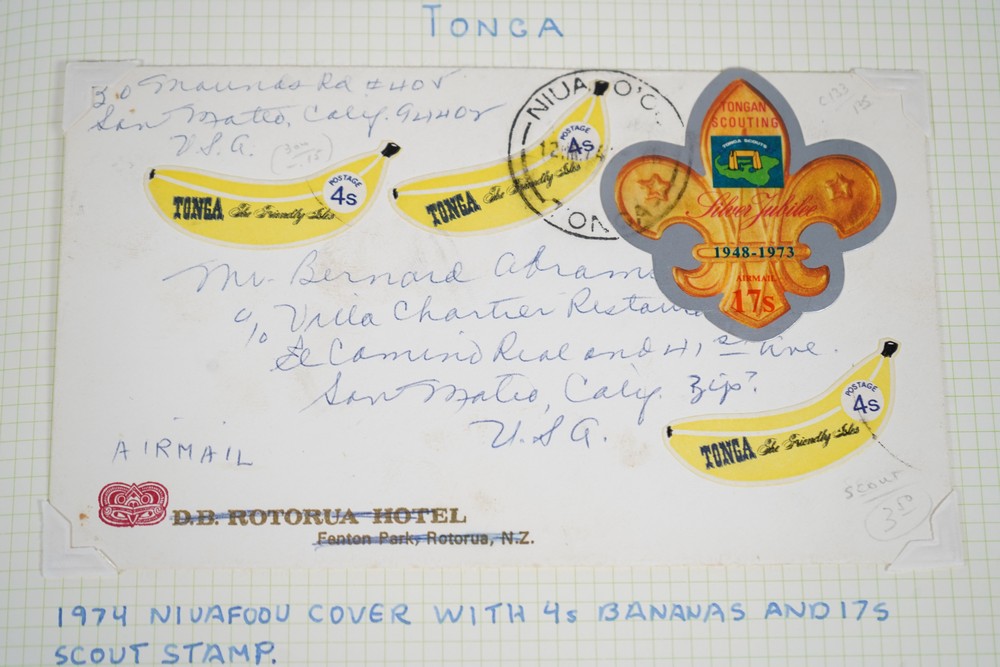 TONGA
30 Mounds Rd #405
San Mateo, Calif. 94402
U.S.A.
POSTAGE
4s
TONGA The Friendly Isles
POSTAGE
4s
TONGA The Friendly Isles
NIUAFO'OU
TONGA
TONGAN
SCOUTING
TONGA SCOUTS
Silver Jubilee
1948-1973
AIRMAIL
17s
Mr. Bernard Abram
c/o Villa Chartier Restaura
El Camino Real and 41st Ave.
San Mateo, Calif. Zip?
U.S.A.
POSTAGE
4s
TONGA The Friendly Isles
AIRMAIL
SCOUT
3.50
D.B. ROTORUA HOTEL
Fenton Park, Rotorua, N.Z.
1974 NIUAFOOU COVER WITH 4s BANANAS AND 17s
SCOUT STAMP.